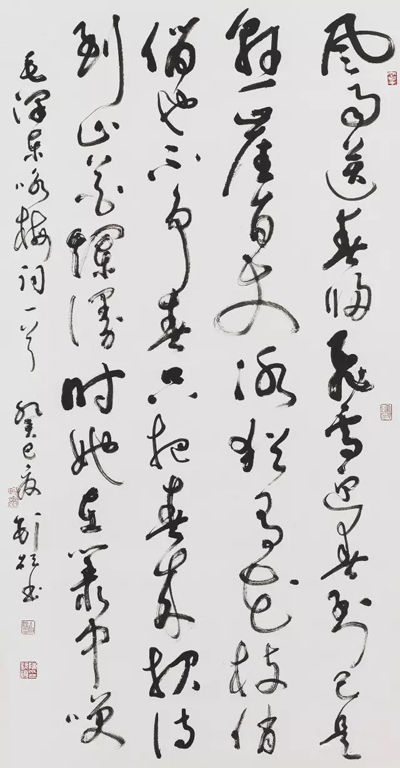 风雨送春归飛雪迎春到已是
懸崖百丈冰猶有花枝俏
俏也不争春只把春来报待
到山花爛漫时她在叢中笑
毛澤东咏梅词一首 癸巳夏 书